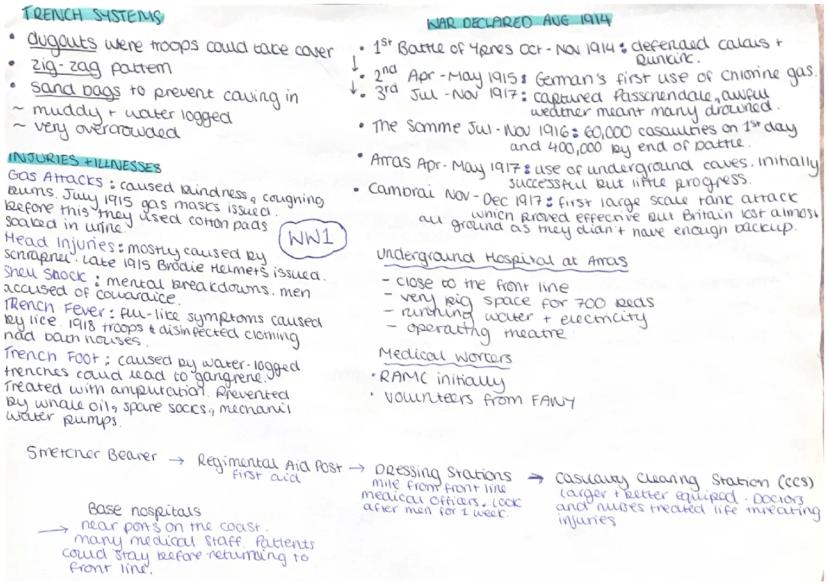 TRENCH SYSTEMS
• dugouts were troops could take cover
• zig-zag pattern
• sand bags to prevent caving in
~ muddy + water logged
~ very overcrowded
INJURIES + ILLNESSES
Gas Attacks : caused blindness, coughing
burns. July 1915 gas masks issued.
before this they used cotton pads
soaked in urine.
Head Injuries : mostly caused by
schrapnel. Late 1915 Brodie Helmets issued.
Shell Shock : mental breakdowns. men
accused of cowardice.
Trench Fever : flu-like symptoms caused
by lice. 1918 troops + disinfected clothing
had bath houses.
Trench Foot : caused by water-logged
trenches could lead to gangrene.
Treated with amputation. Prevented
by whale oil, spare socks,
water pumps.
WW1
WAR DECLARED AUG 1914
• 1st Battle of Ypres Oct - Nov 1914 : defended calais +
Dunkirk.
↓ • 2nd Apr - May 1915 : German's first use of Chlorine gas.
↓ • 3rd Jul - Nov 1917 : captured Passchendale, awful
weather meant many drowned.
• The Somme Jul - Nov 1916 : 60,000 casualties on 1st day
and 400,000 by end of battle.
• Arras Apr - May 1917 : use of underground caves. initially
successful but little progress.
• Cambrai Nov - Dec 1917 : first large scale tank attack
which proved effective but Britain lost almost
all ground as they didn't have enough backup.
Underground Hospital at Arras
- close to the front line
- very big space for 700 beds
- running water + electricity
- operating theatre
Medical Workers
• RAMC initially
• volunteers from FANY
Stretcher Bearer → Regimental Aid Post → Dressing Stations → Casualty Clearing Station (CCS)
first aid
mile from front line
medical officers. look
after men for 1 week.
larger + better equiped. Doctors
and nurses treated life threating
injuries
Base hospitals
→ near ports on the coast.
many medical staff. Patients
could stay before returning to
front line.